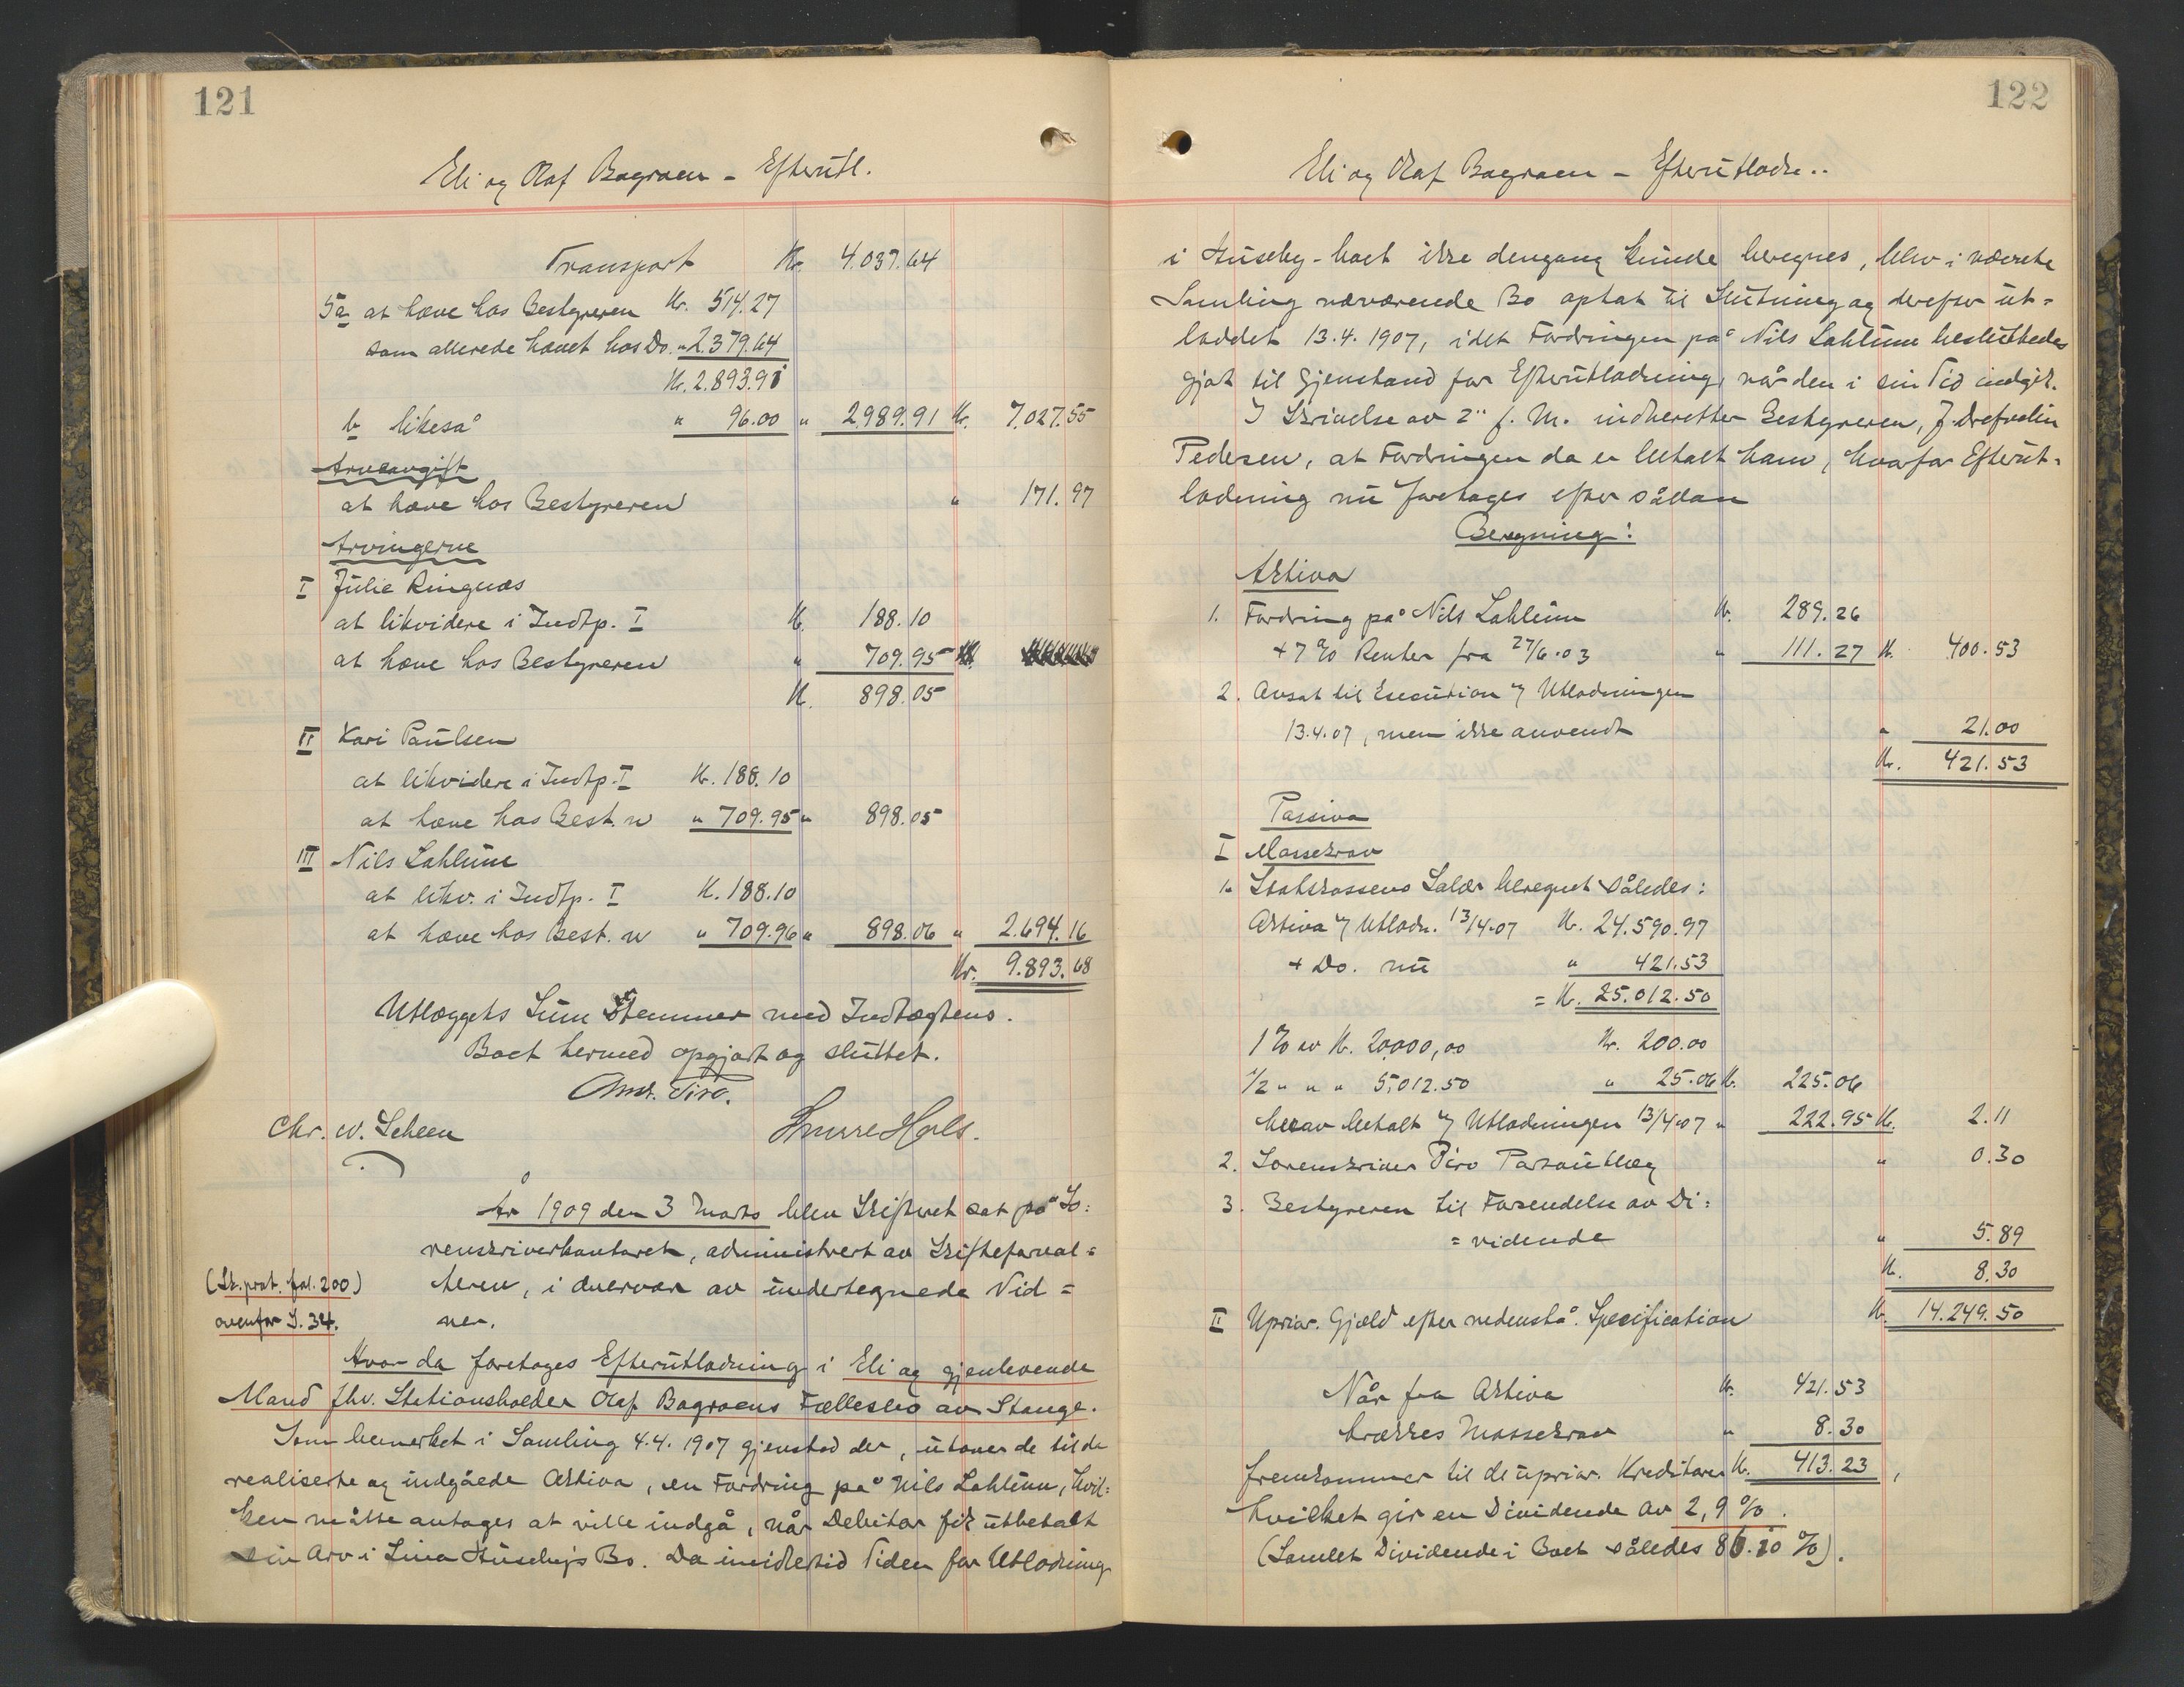 121
Eli og Olaf Bagroen - Efterutl.
Transport Kr. 4.037.64
5a at hæve hos Bestyreren Kr. 514.27
som allerede hævet hos Do. " 2.379.64
Kr. 2.893.91
b likeså " 96.00 " 2.989.91 Kr. 7.027.55
Arveavgift
at hæve hos Bestyreren " 171.97
Arvingerne
I Julie Ringnæs
at likvidere i Indtp. I Kr. 188.10
at hæve hos Bestyreren " 709.95
Kr. 898.05
II Kari Paulsen
at likvidere i Indtp. I Kr. 188.10
at hæve hos Best. n " 709.95 " 898.05
III Nils Lahlum
at likv. i Indtp. I Kr. 188.10
at hæve hos Best. n " 709.96 " 898.06 " 2.694.16
Kr. 9.893.68
Utlæggets Sum stemmer med Indtægtens.
Boet hermed opgjort og sluttet.
Andr. Piro.
Chr. W. Scheen Snorre Hals.
År 1909 den 3 Marts blev Skifteret sat på So:
renskriverkontoret, administrert av Skifteforval=
(Sk.prot. fol. 200) teren, i overvær av undertegnede Vid=
ovenfor S. 34. ner.
Hvor da foretages Efterutlodning i Eli og gjenlevende
Mand fhv. Stationsholder Olaf Bagroens Fællesbo av Stange.
Som bemerket i Samling 4.4. 1907 gjenstod der, utover de til da
realiserte og indgåede Aktiva, en Fordring på Nils Lahlum, hvil:
ken måtte antages at ville indgå, når Debitor fik utbetalt
sin Arv i Lina Husebys Bo. Da imidlertid Tiden for Utlodning
122
Eli og Olaf Bagroen - Efterutlodn..
i Huseby-boet ikke dengang kunde beregnes, blev i nævnte
Samling nærværende Bo optat til Slutning og derefter ut=
loddet 13.4. 1907, idet Fordringen på Nils Lahlum besluttedes
gjort til Gjenstand for Efterutlodning, når den i sin Tid indgik.
I Skrivelse av 2" f. M. indberetter Bestyreren, J. Drefvelin
Pedersen, at Fordringen da er betalt ham, hvorfor Efterut=
lodning nu foretages efter sådan
Beregning:
Aktiva
1. Fordring på Nils Lahlum Kr. 289.26
+ 7 % Renter fra 27/6.03 " 111.27 Kr. 400.53
2. Avsat til Execution v/ Utlodningen
13.4.07, men ikke anvendt " 21.00
Kr. 421.53
Passiva
I Massekrav
1. Statskassens Salær beregnet således:
Aktiva v/ Utlodn. 13/4.07 Kr. 24.590.97
+ Do. nu " 421.53
= Kr. 25.012.50
1 % av Kr. 20000,00 Kr. 200.00
1/2 " " " 5.012.50 " 25.06 Kr. 225.06
herav betalt v/ Utlodningen 13/4.07 " 222.95 Kr. 2.11
2. Sorenskriver Piro Portoutlæg " 0.30
3. Bestyreren til Forsendelse av Di=
=vidende " 5.89
Kr. 8.30
II Uprior. Gjæld efter nedenstå. Specification Kr. 14.249.50
Når fra Aktiva Kr. 421.53
trækkes Massekrav " 8.30
fremkommer til de uprior. Kreditorer Kr. 413.23,
hvilket gir en Dividende av 2,9 %.
(Samlet Dividende i Boet således 86.10 %).